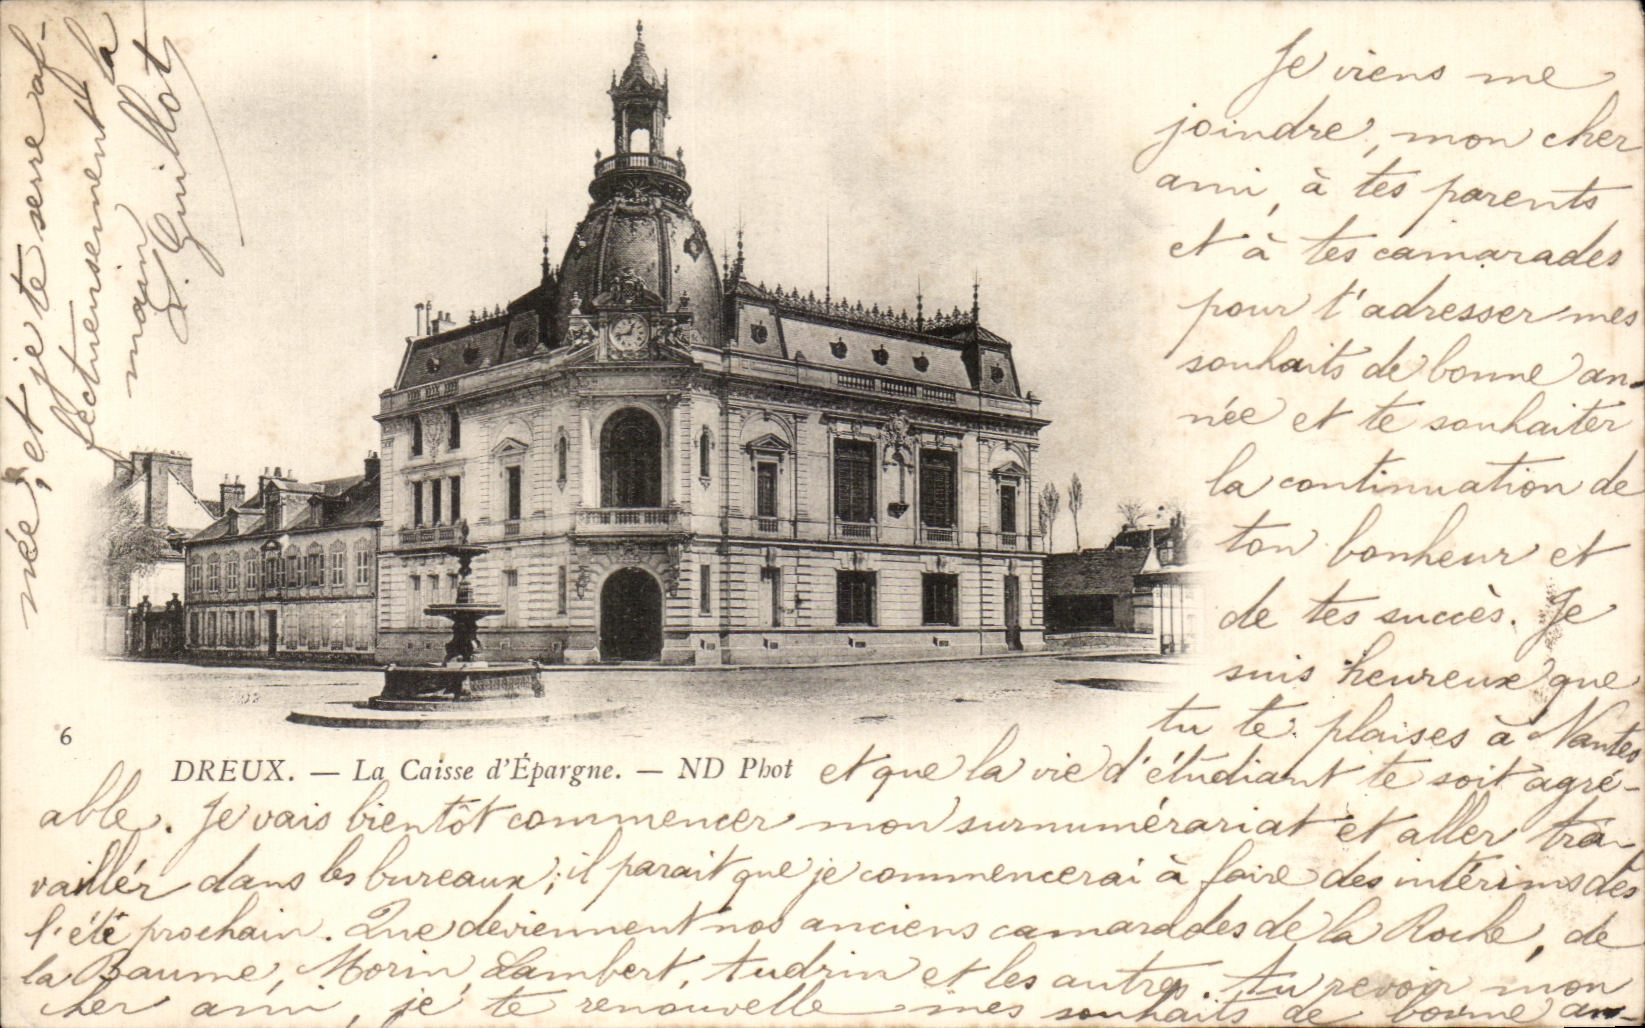 Je viens me
joindre, mon cher
ami, à tes parents
et à tes camarades
pour t'adresser mes
souhaits de bonne an-
née et te souhaiter
la continuation de
ton bonheur et
de tes succès. Je
suis heureux que
tu te plaises à Nantes
6
DREUX. — La Caisse d'Épargne. — ND Phot
et que la vie d'étudiant te soit agré-
able. Je vais bientôt commencer mon surnumérariat et aller tra-
vailler dans les bureaux; il parait que je commencerai à faire des intérims dès
l'été prochain. Que deviennent nos anciens camarades de la Roche, de
la Baume, Morin, Lambert, Audrin et les autres. Au revoir mon
cher ami, je te renouvelle mes souhaits de bonne an-
née, et je te serre af-
fectueusement la
main
Guillot